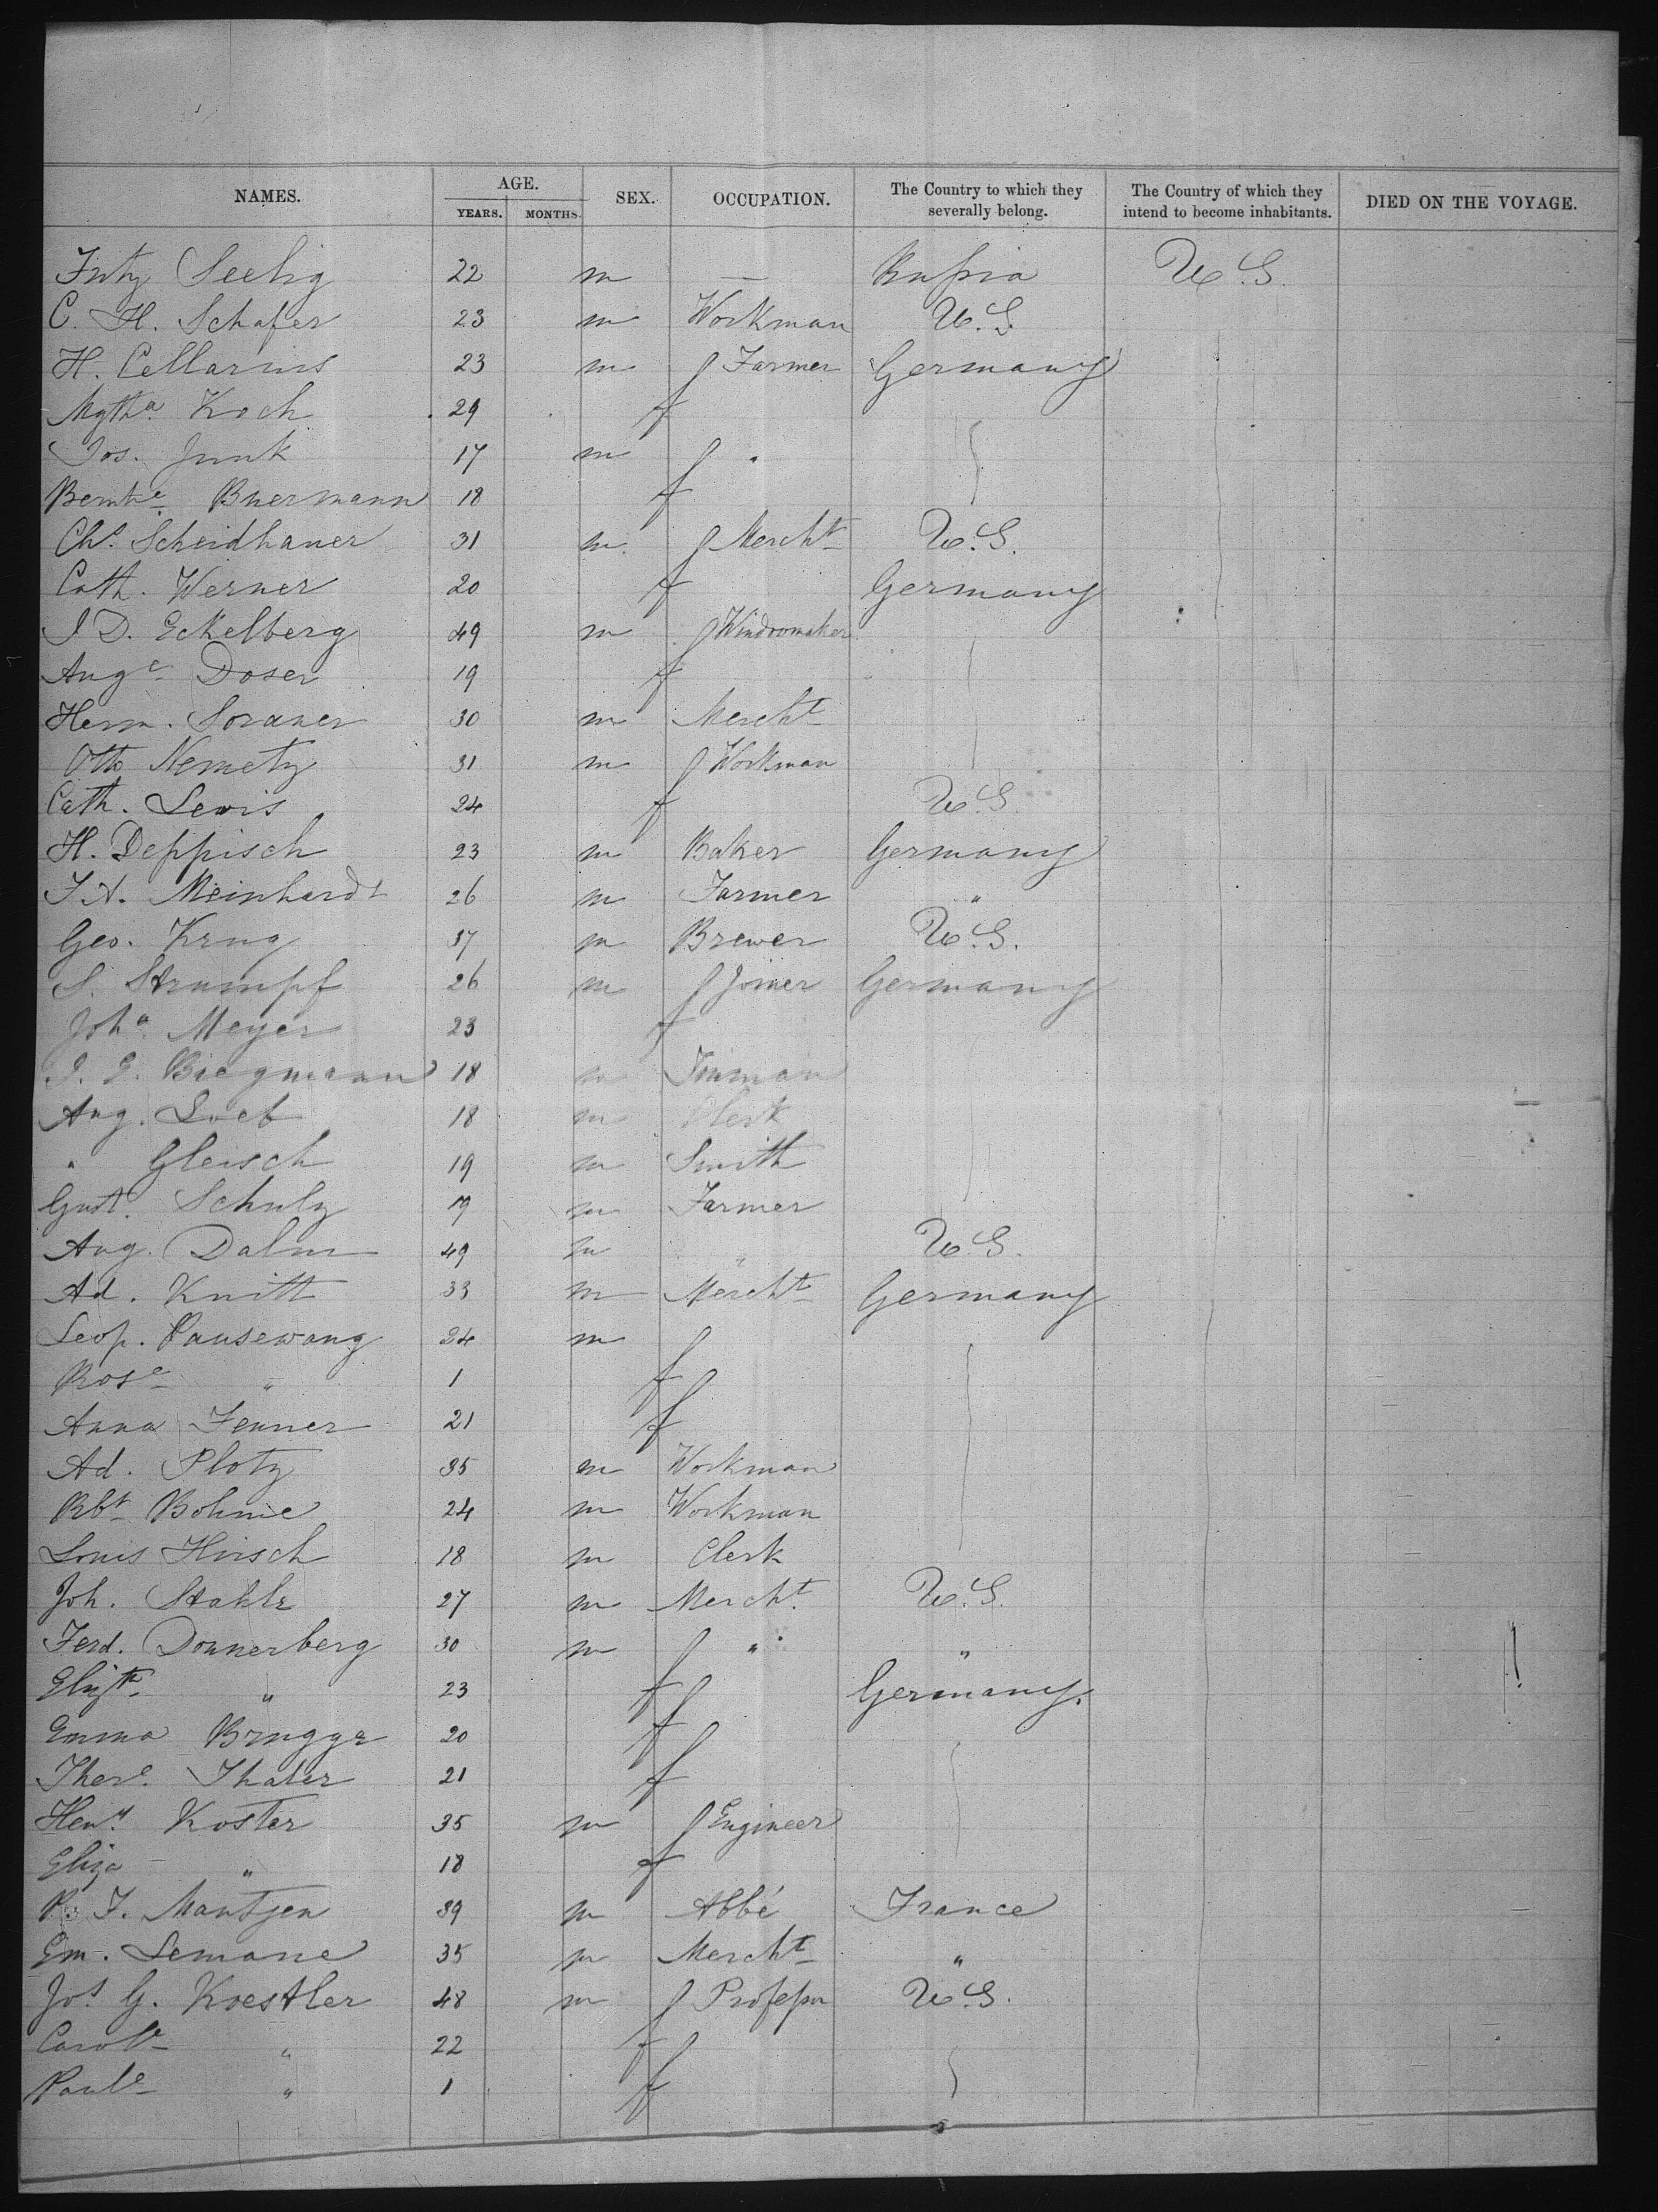 NAMES. AGE. YEARS. MONTHS. SEX. OCCUPATION. The Country to which they severally belong. The Country of which they intend to become inhabitants. DIED ON THE VOYAGE.
Fritz Seelig 22 m — Russia U.S.
C. H. Schafer 23 m Workman U.S.
H. Cellarius 23 m Farmer Germany
Mgtha Koch 29 f
Jos. Junk 17 m "
Buermann 18 f
Chs. Scheidhauer 31 m Mercht U.S.
Cath. Werner 20 f Germany
J. D. Eckelberg 49 m
Auge Doser 19 f
Herm. Soraner 30 m Mercht
Otto Nemetz 31 m Workman
Cath. Lewis 24 f U.S.
H. Deppisch 23 m Baker Germany
J. A. Meinhardt 26 m Farmer "
Geo. Krug 37 m Brewer U.S.
S. Strumpf 26 m Joiner Germany
Joha Meyer 23 f
J. E. Biegmann 18 m Tinman
Aug. Loeb 18 m Clerk
" Gleisch 19 m Smith
Gust. Schulz 19 m Farmer
Aug. Dalm 49 m " U.S.
Ad. Knitt 33 m Mercht Germany
Leop. Pausewang 24 m
Rose " 1 f
Anna Fenner 21 f
Ad. Plotz 35 m Workman
Rbt Bohme 24 m Workman
Louis Hirsch 18 m Clerk
Joh. Stahle 27 m Mercht. U.S.
Ferd. Donnerberg 30 m " "
Elizth " 23 f Germany.
Emma Brugge 20 f
There. Thaler 21 f
Heny Koster 35 m Engineer
Eliza " 18 f
P. J. Mantjen 39 m Abbé France
Em. Lemane 35 m Mercht "
Jos. G. Koestler 48 m Professor U.S.
Carole " 22 f
Paule " 1 f